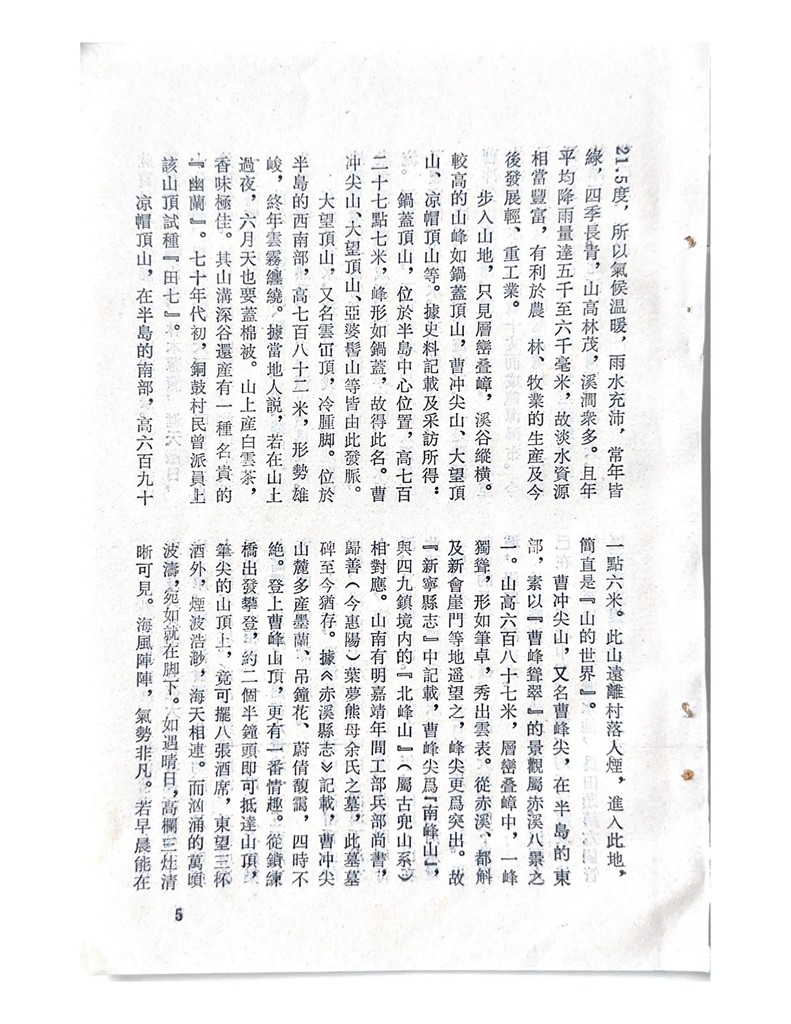 21.5度，所以氣候温暖，雨水充沛，常年皆
緑，四季長青，山高林茂，溪澗衆多。且年
平均降雨量達五千至六千毫米，故淡水資源
相當豐富，有利於農、林、牧業的生産及今
後發展輕、重工業。
步入山地，只見層巒叠嶂，溪谷縱横。
較高的山峰如鍋蓋頂山，曹冲尖山、大望頂
山、凉帽頂山等。據史料記載及采訪所得：
鍋蓋頂山，位於半島中心位置，高七百
二十七點七米，峰形如鍋蓋，故得此名。曹
冲尖山、大望頂山、亞婆髻山等皆由此發脈。
大望頂山，又名雲㠪頂，冷腫脚。位於
半島的西南部，高七百八十二米，形勢雄
峻，終年雲霧纏繞。據當地人説，若在山上
過夜，六月天也要蓋棉被。山上産白雲茶，
香味極佳。其山溝深谷還産有一種名貴的
『幽蘭』。七十年代初，銅鼓村民曾派員上
該山頂試種『田七』。
凉帽頂山，在半島的南部，高六百九十
一點六米。此山遠離村落人煙，進入此地，
簡直是『山的世界』。
曹冲尖山，又名曹峰尖，在半島的東
部，素以『曹峰聳翠』的景觀屬赤溪八景之
一。山高六百八十七米，層巒叠嶂中，一峰
獨聳，形如筆卓，秀出雲表。從赤溪、都斛
及新會崖門等地遥望之，峰尖更爲突出。故
『新寧縣志』中記載，曹峰尖爲『南峰山』，
與四九鎮境内的『北峰山』（屬古兜山系）
相對應。山南有明嘉靖年間工部兵部尚書，
歸善（今惠陽）葉夢熊母余氏之墓，此墓墓
碑至今猶存。據《赤溪縣志》記載，曹冲尖
山麓多産墨蘭、吊鐘花、蔚倩馥靄，四時不
絶。登上曹峰山頂，更有一番情趣。從鎖練
橋出發攀登，約二個半鐘頭即可抵達山頂，
筆尖的山頂上，竟可擺八張酒席，東望三杯
酒外，煙波浩渺，海天相連。而汹涌的萬頃
波濤，宛如就在脚下。如遇晴日，高欄三灶清
晰可見。海風陣陣，氣勢非凡。若早晨能在
5